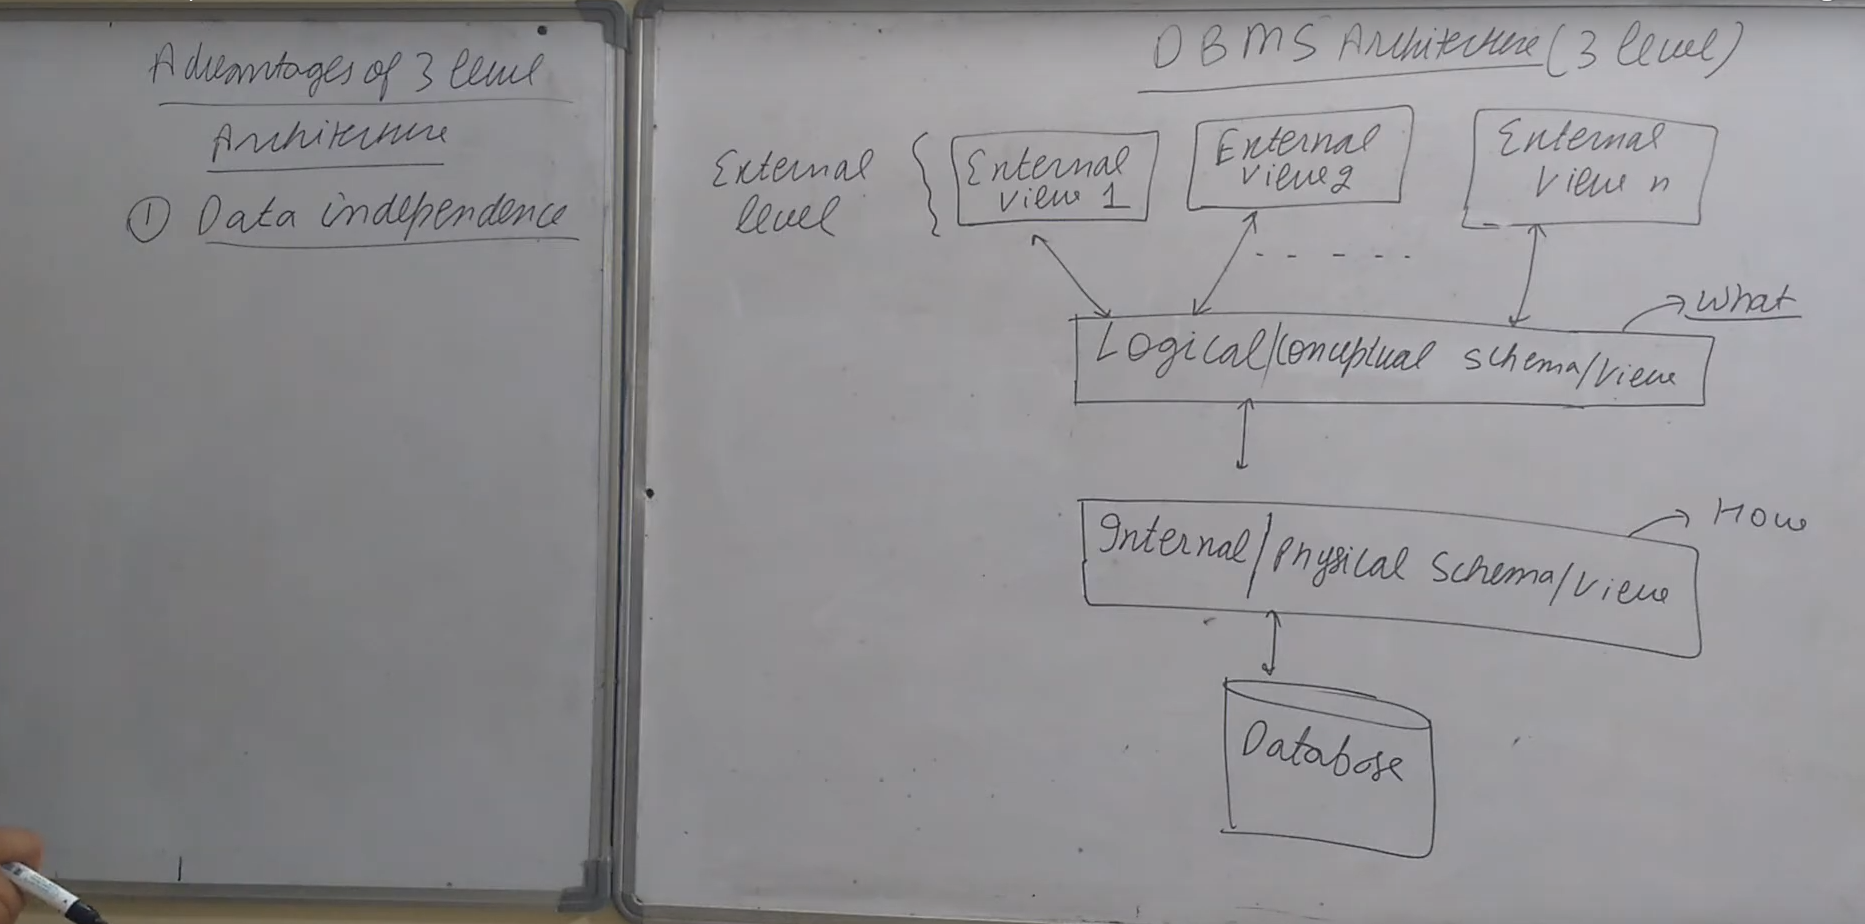 Advantages of 3 level
Architecture
① Data independence
DBMS Architecture (3 level)
External
level
External
view 1
External
view 2
External
view n
What
Logical/conceptual schema/view
How
Internal/physical schema/view
Database